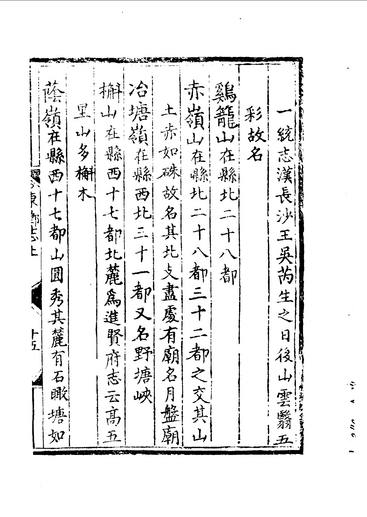 一統志漢長沙王吳芮生之日後山雲翳五
彩故名
鷄籠山在縣北二十八都
赤嶺山在縣北二十八都三十二都之交其山
土赤如硃故名其北支盡處有廟名月盤廟
冶塘嶺在縣西北三十一都又名野塘峽
槲山在縣西十七都北麓爲進賢府志云高五
里山多槲木
蔭嶺在縣西十七都山圓秀其麓有石瞰塘如
東鄉志上
十五